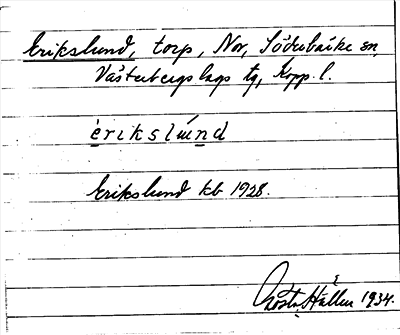 Erikslund, torp, Nor, Söderbärke sn,
Västerbergslags tg, Kopp. l.
èrikslùnd
Erikslund kb 1928.
Gösta Hallén 1934.